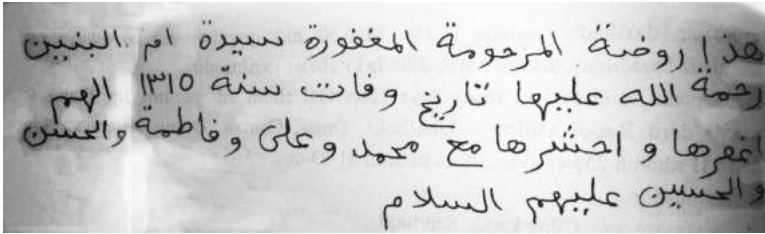 هدا روضة المرحومة المغفورة سيدة ام البنين
رحمة الله عليها تاريخ وفات سنة ١٣١٥ الهم
اغفرها و احشرها مع محمد وعلى وفاطمة والحسن
والحسين عليهم السلام